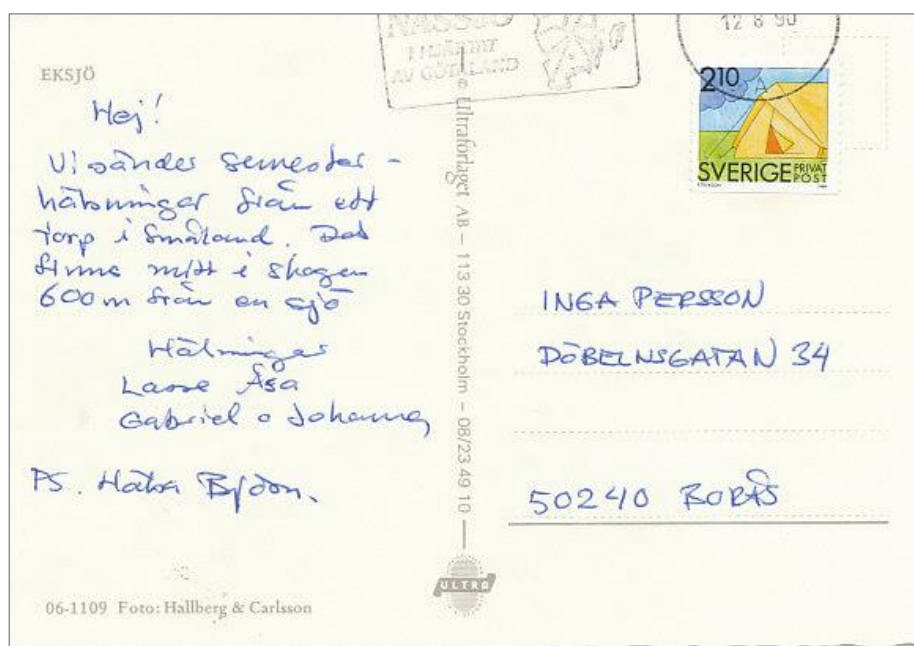 EKSJÖ
Hej!
Vi sänder semester-
hälsningar från ett
torp i Småland. Det
finns mitt i skogen
600m från en sjö
Hälsningar
Lasse Åsa
Gabriel o Johanna
PS. Hälsa Björn.
06-1109 Foto: Hallberg & Carlsson
NÄSSJÖ
I HJÄRTAT
AV GÖTALAND
© Ultraförlaget AB – 113 30 Stockholm – 08/23 49 10
ULTRA
12 8 90
210
SVERIGE PRIVAT
POST
INGA PERSSON
DÖBELNSGATAN 34
50240 BORÅS